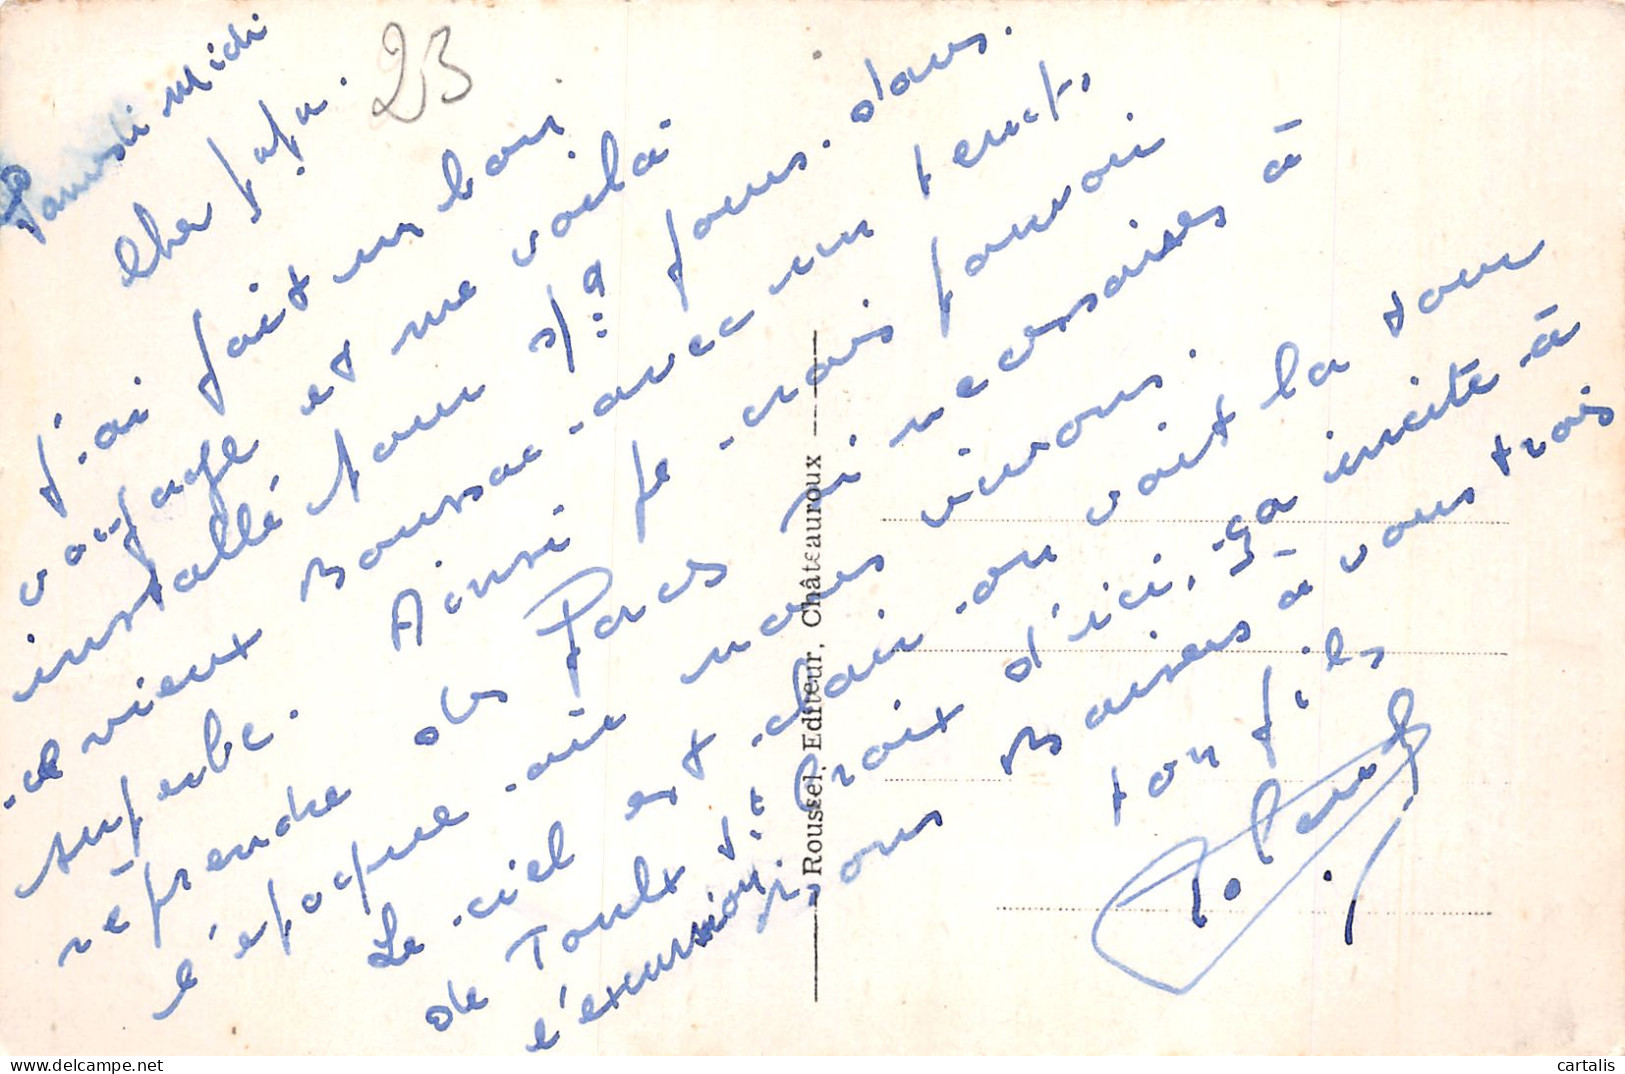 Samedi midi
23
Cher papa.
J'ai fait un bon
voyage et me voilà
installé pour qq: jours. dans.
ce vieux Boussac - avec un temps
superbe. Ainsi je vais pouvoir
reprendre des forces si nécessaires à
l'époque où nous vivons.
Le ciel est clair on voit la tour
de Toulx Ste Croix d'ici, ça incite à
l'excursion. Bons Baisers à vous trois
ton fils
Roussel, Editeur, Châteauroux
cartalis